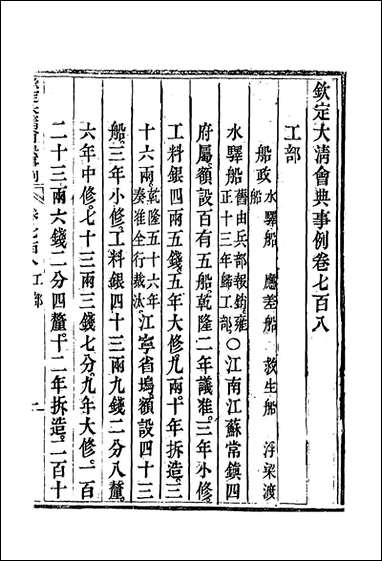 欽定大清會典事例卷七百八
工部
船政水驛船 應差船 救生船 浮梁渡
船
水驛船舊由兵部報銷雍
正十三年歸工部○江南江蘇常鎮四
府屬額設百有五船乾隆二年議准三年小修
工料銀四兩五錢五年大修九兩十年拆造三
十六兩乾隆五十六年
奏准全行裁汰江寧省塢額設四十三
船三年小修工料銀四十三兩九錢二分八釐
六年中修七十三兩三錢七分九年大修一百
二十三兩六錢二分四釐十二年拆造二百十
卷七百八 工部
一